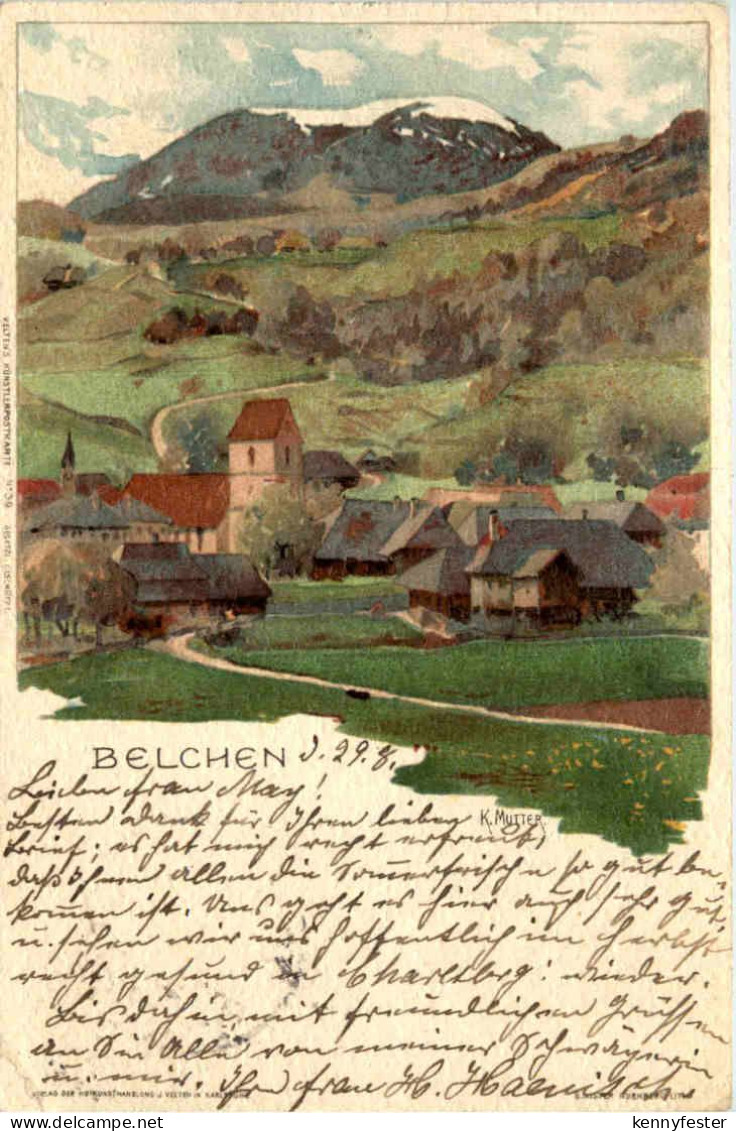 VELTEN'S KÜNSTLERPOSTKARTE No 39
BELCHEN d. 29. 8.
K. MUTTER
Liebe Frau May!
Besten Dank für Ihren lieben
Brief; es hat mich recht erfreut,
daß Ihnen allen die Sommerfrische so gut be-
kommen ist. Uns geht es hier auch sehr gut,
u. sehen wir uns hoffentlich im Herbst
recht gesund in Charltbg: wieder.
Bis dahin, mit freundlichen Grüssen
an Sie Alle von meiner Schwägerin
u. mir. Ihre Frau H. Haenisch.
VERLAG DER HOFKUNSTHANDLUNG J. VELTEN IN KARLSRUHE
kennyfester